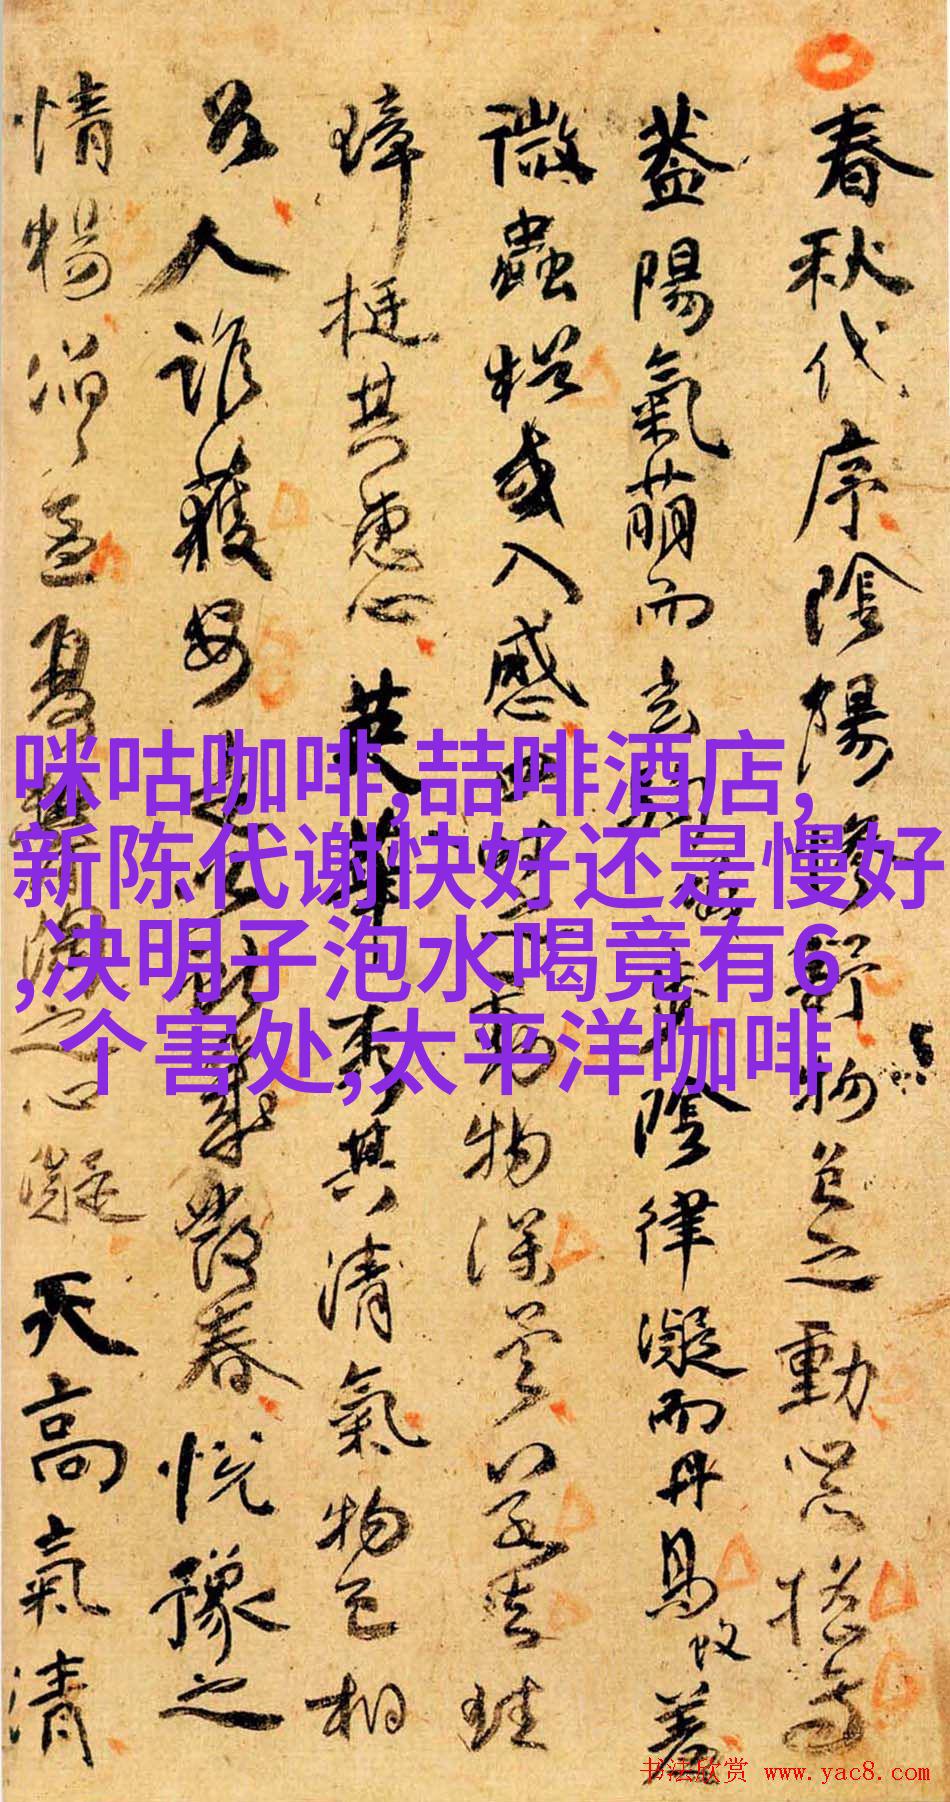 春秋代序陰陽慘舒物色之動心亦搖焉
蓋陽氣萌而玄駒步陰律凝而丹鳥蚊羞
微蟲猶或入感四時之動物深矣若夫珪
璋挺其惠心英華秀其清氣物色相
召人誰獲安是以獻歲發春悅豫之
情暢滔〻孟夏鬱陶之心凝天高氣清
咪咕咖啡,喆啡酒店,
新陈代谢快好还是慢好
,决明子泡水喝竟有6
个害处,太平洋咖啡
书法欣赏 www.yac8.com